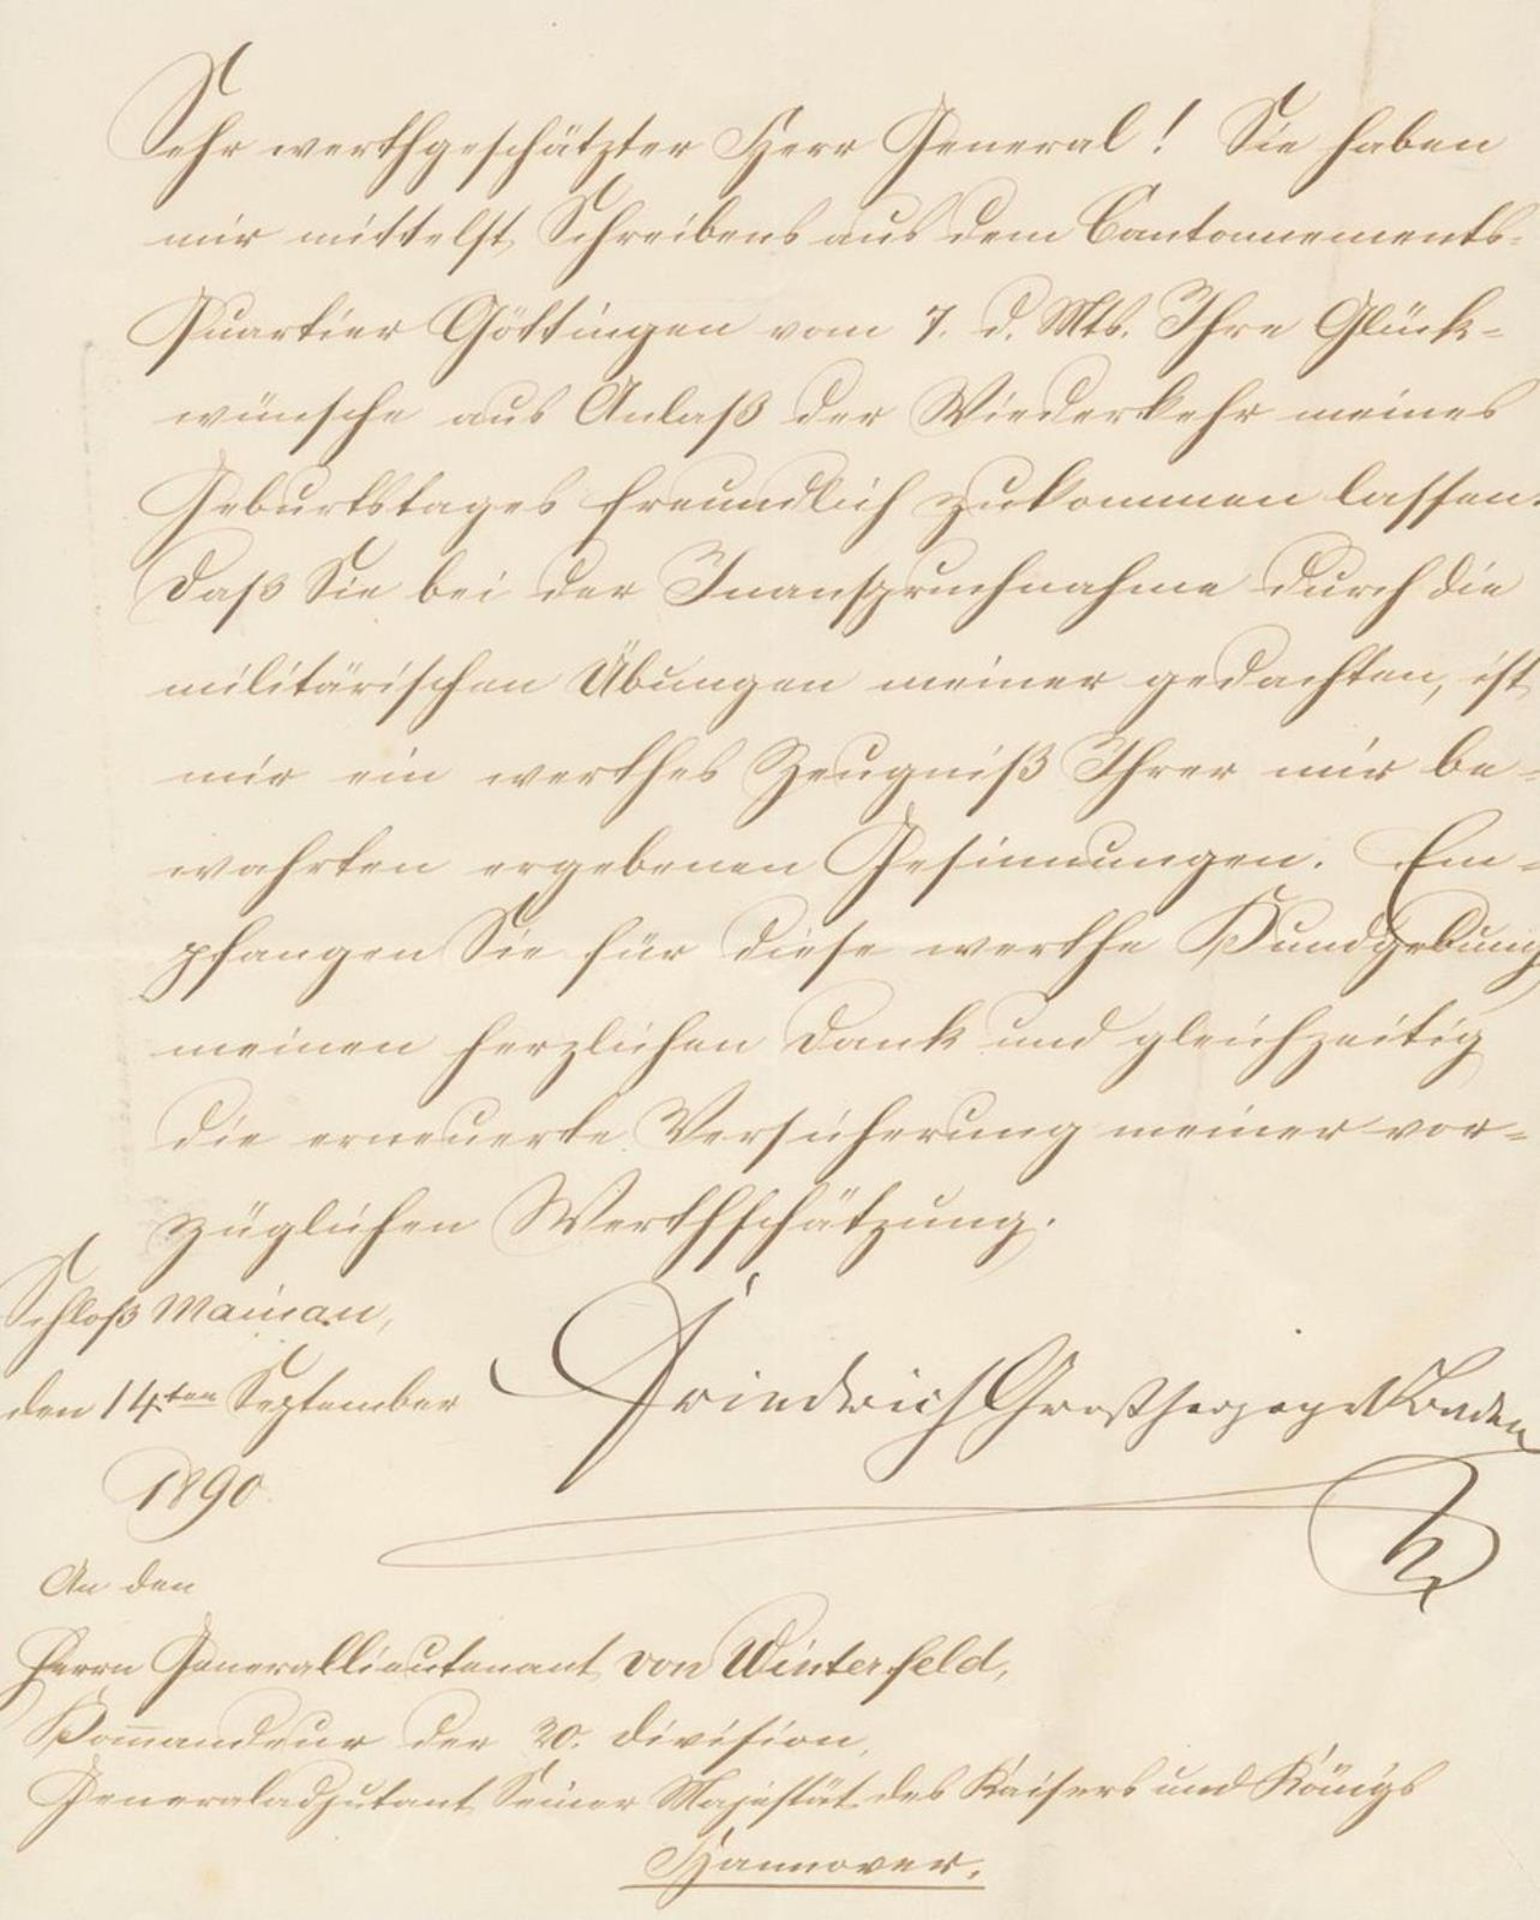 Sehr werthgeschätzter Herr General! Sie haben
mir mittelst Schreibens aus dem Cantonnements-
Quartier Göttingen vom 7. d. Mts. Ihre Glück-
wünsche aus Anlaß der Wiederkehr meines
Geburtstages freundlich zukommen lassen.
Daß Sie bei der Inanspruchnahme durch die
militärischen Übungen meiner gedachten, ist
mir ein werthes Zeugniß Ihrer mir be-
wahrten ergebenen Gesinnungen. Em-
pfangen Sie für diese werthe Kundgebung
meinen herzlichen Dank und gleichzeitig
die erneuerte Versicherung meiner vor-
züglichen Werthschätzung.
Schloß Mainau,
den 14ten September
1890.
Friedrich Großherzog v Baden
An den
Herrn Generallieutenant von Winterfeld,
Kom̅andeur der 20. Division,
Generaladjutant Seiner Majestät des Kaisers und Königs
Hannover.